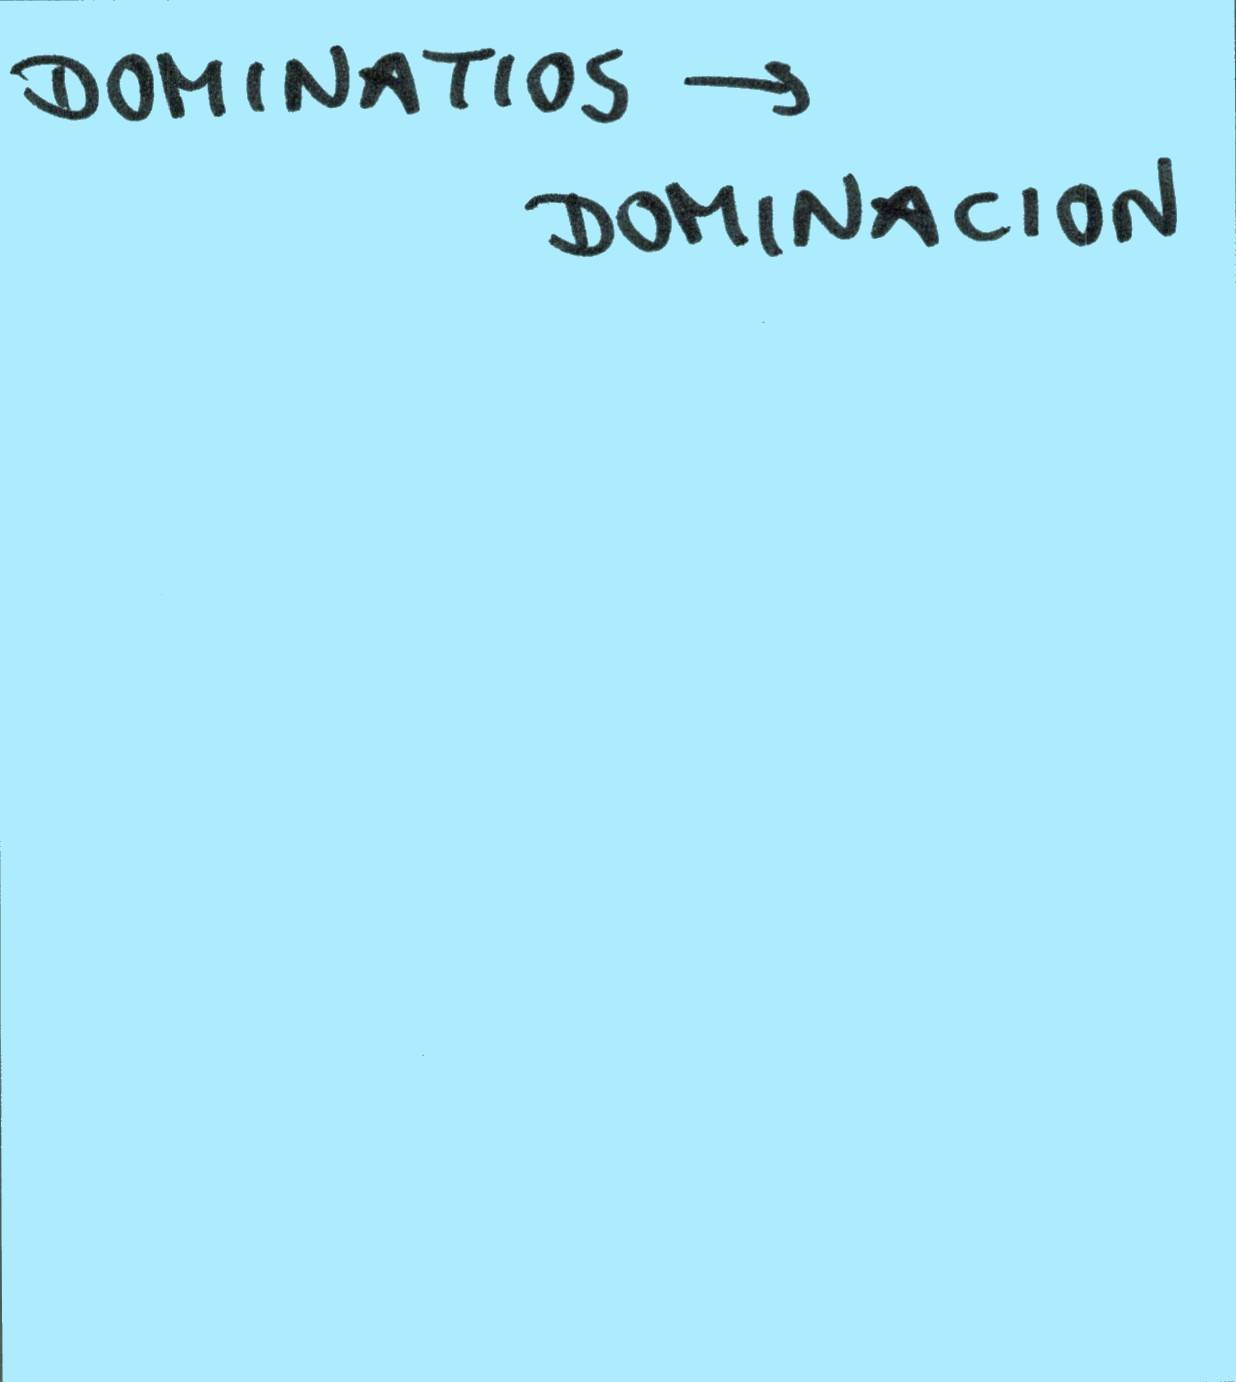 DOMINATIOS →
DOMINACION